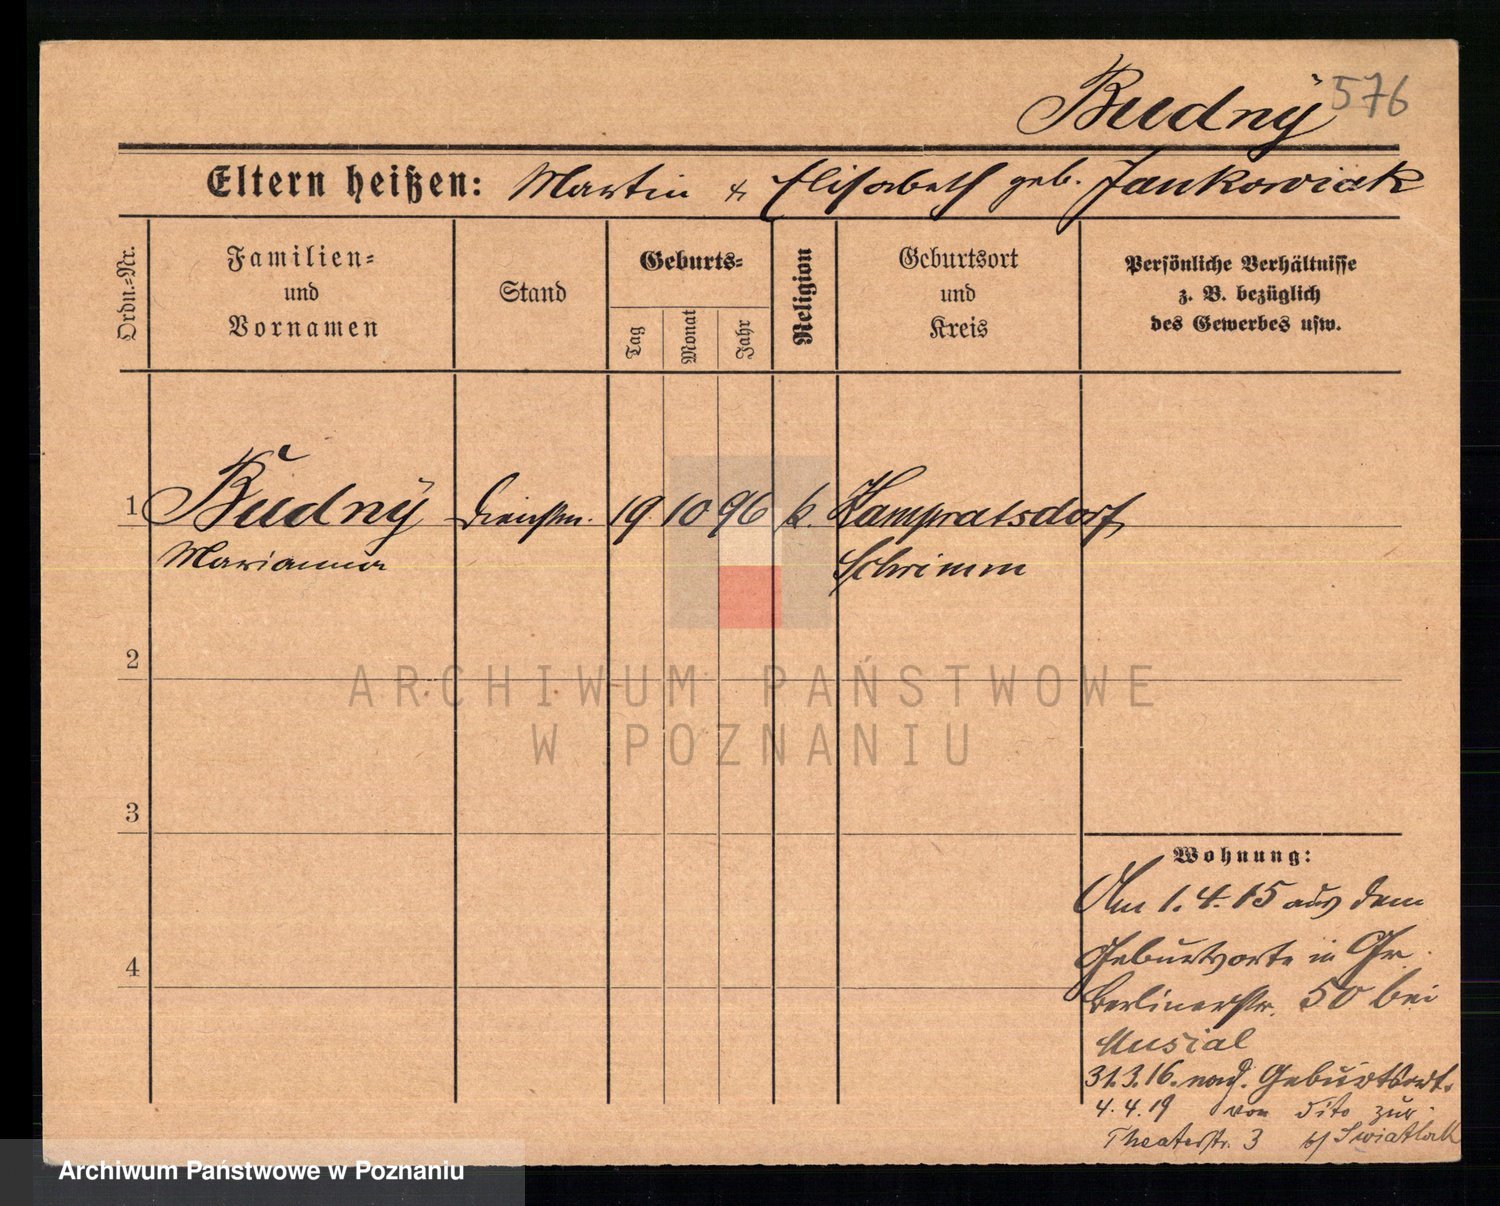 Budny 576
Eltern heißen: Martin & Elisabeth geb. Jankowiak
Ordn.-Nr.
Familien-
und
Vornamen
Stand
Geburts-
Tag
Monat
Jahr
Religion
Geburtsort
und
Kreis
Persönliche Verhältnisse
z. B. bezüglich
des Gewerbes usw.
1 Budny Dienstm. 19 10 96 k. Kampratsdorf
Marianna Schrimm
2
ARCHIWUM PAŃSTWOWE
W POZNANIU
3
4
Wohnung:
Am 1.4.15 aus dem
Geburtsorte in Gr.
Berlinerstr. 50 bei
Musial
31.3.16. nach Geburtsort.
4.4.19 von dito zur
Theaterstr. 3 b/ Swiatlak
Archiwum Państwowe w Poznaniu